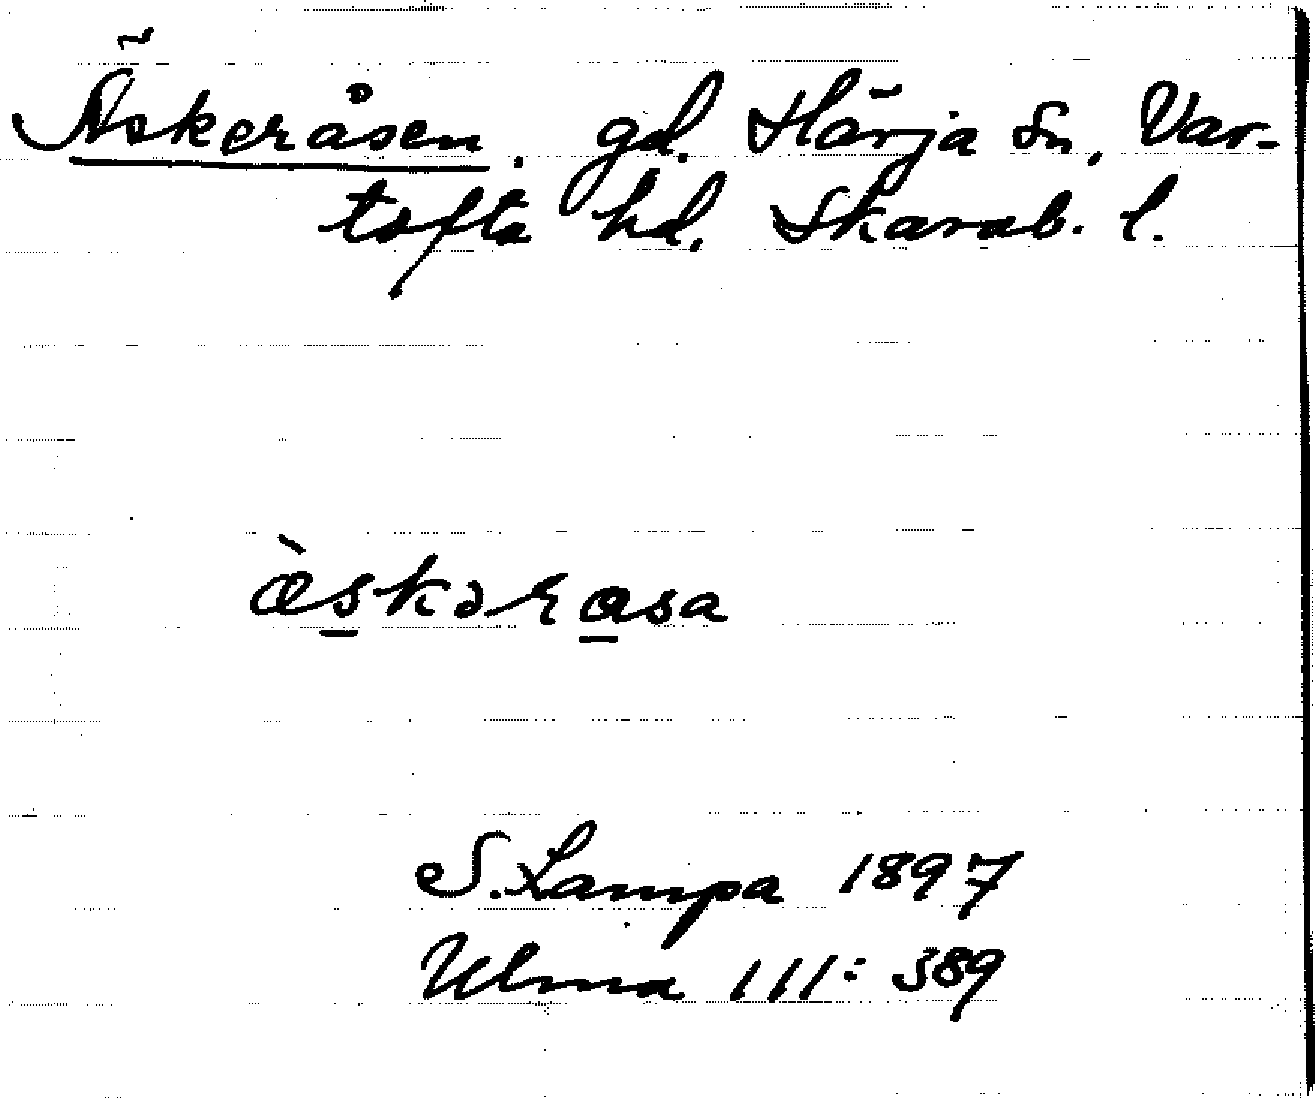 Äskeråsen. gd. Härja sn, Var-
tofta hd. Skarab. l.
æ̀skərasa
S. Lampa 1897
Ulma 111: 389